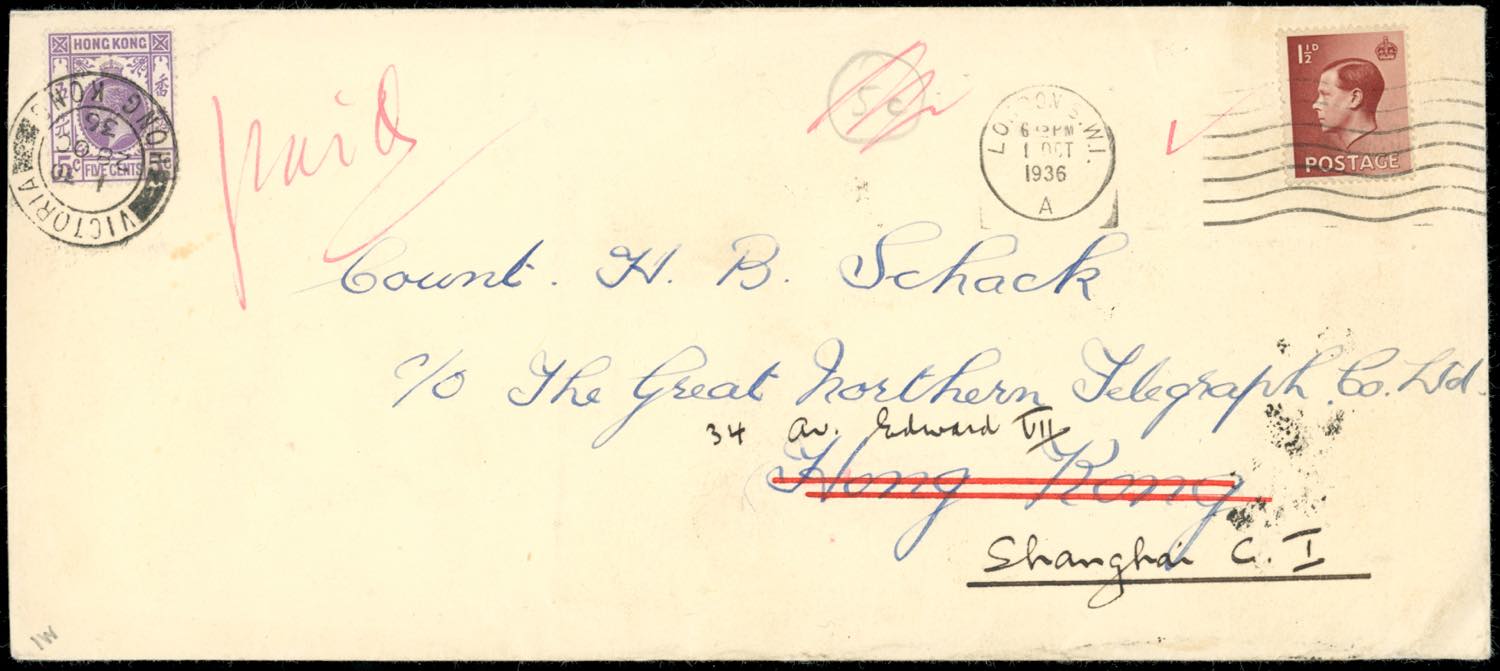 HONG KONG
香
5c
FIVE CENTS
VICTORIA
HONG KONG
28 OC
36
paid
5c
LONDON S.W.1.
PM
1 OCT
1936
A
1½D
POSTAGE
Count. H. B. Schack
c/o The Great Northern Telegraph. Co. Ltd.
34 Av. Edward VII
Hong Kong
Shanghai C. I